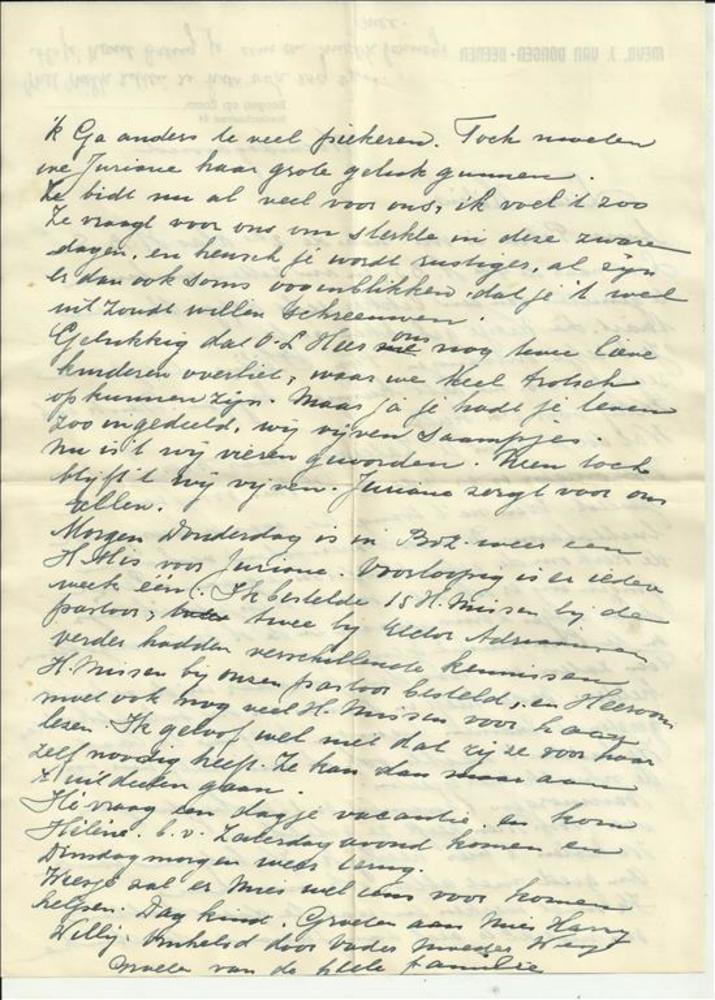 'k Ga anders te veel piekeren. Toch moeten
we Juriane haar grote geluk gunnen.
Ze bidt nu al veel voor ons, ik voel 't zoo
Ze vraagt voor ons om sterkte in deze zware
dagen, en heusch je wordt rustiger, al zijn
er dan ook soms oogenblikken dat je 't wel
uit zoudt willen schreeuwen.
Gelukkig dat O.L. Heer ons nog twee lieve
kinderen overliet, waar we heel trotsch
op kunnen zijn. Maar ja je hadt je leven
zoo ingedeeld, wij vijven saampjes.
Nu is 't wij vieren geworden. Neen toch
blijft 't wij vijven. Juriane zorgt voor ons
allen.
Morgen Donderdag is in Boz. weer een
H. Mis voor Juriane. Voorloopig is er iedere
week één. Ik bestelde 15 H. Missen bij de
pastoor, twee bij Rector Adriaansen
verder hadden verschillende kennissen
H. Missen bij onzen pastoor besteld, en Heeroom
moet ook nog veel H. Missen voor haar
lezen. Ik geloof wel niet dat zij ze voor haar
zelf noodig heeft. Ze kan dan maar aan
't uitdeelen gaan.
Hé vraag een dagje vacantie en kom
Hélène. b.v. Zaterdagavond komen en
Dinsdagmorgen weer terug.
zal er Mies wel eens voor komen
helpen. Dag kind. Groeten aan Mies Harry
Willy. Omhelsd door Vader Moeder
Groeten van de heele familie
MEVR. J. VAN DONGEN-DEENEN
Bergen op Zoom